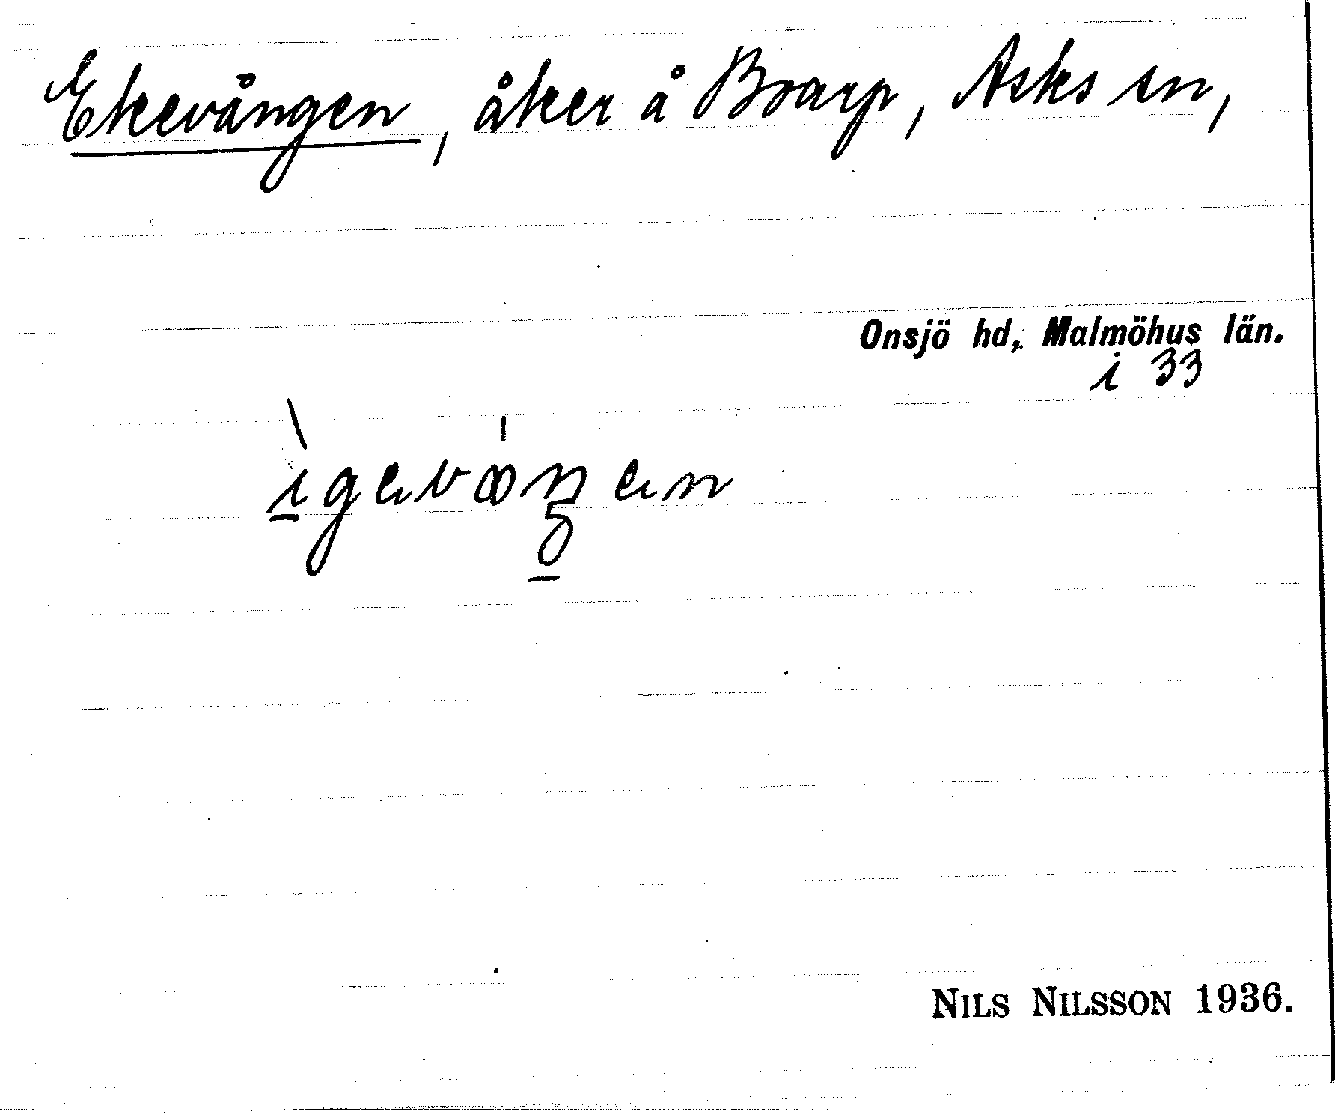 Ekevången, åker å Boarp, Asks sn,
Onsjö hd, Malmöhus län.
i 33
ìgevåŋen
NILS NILSSON 1936.